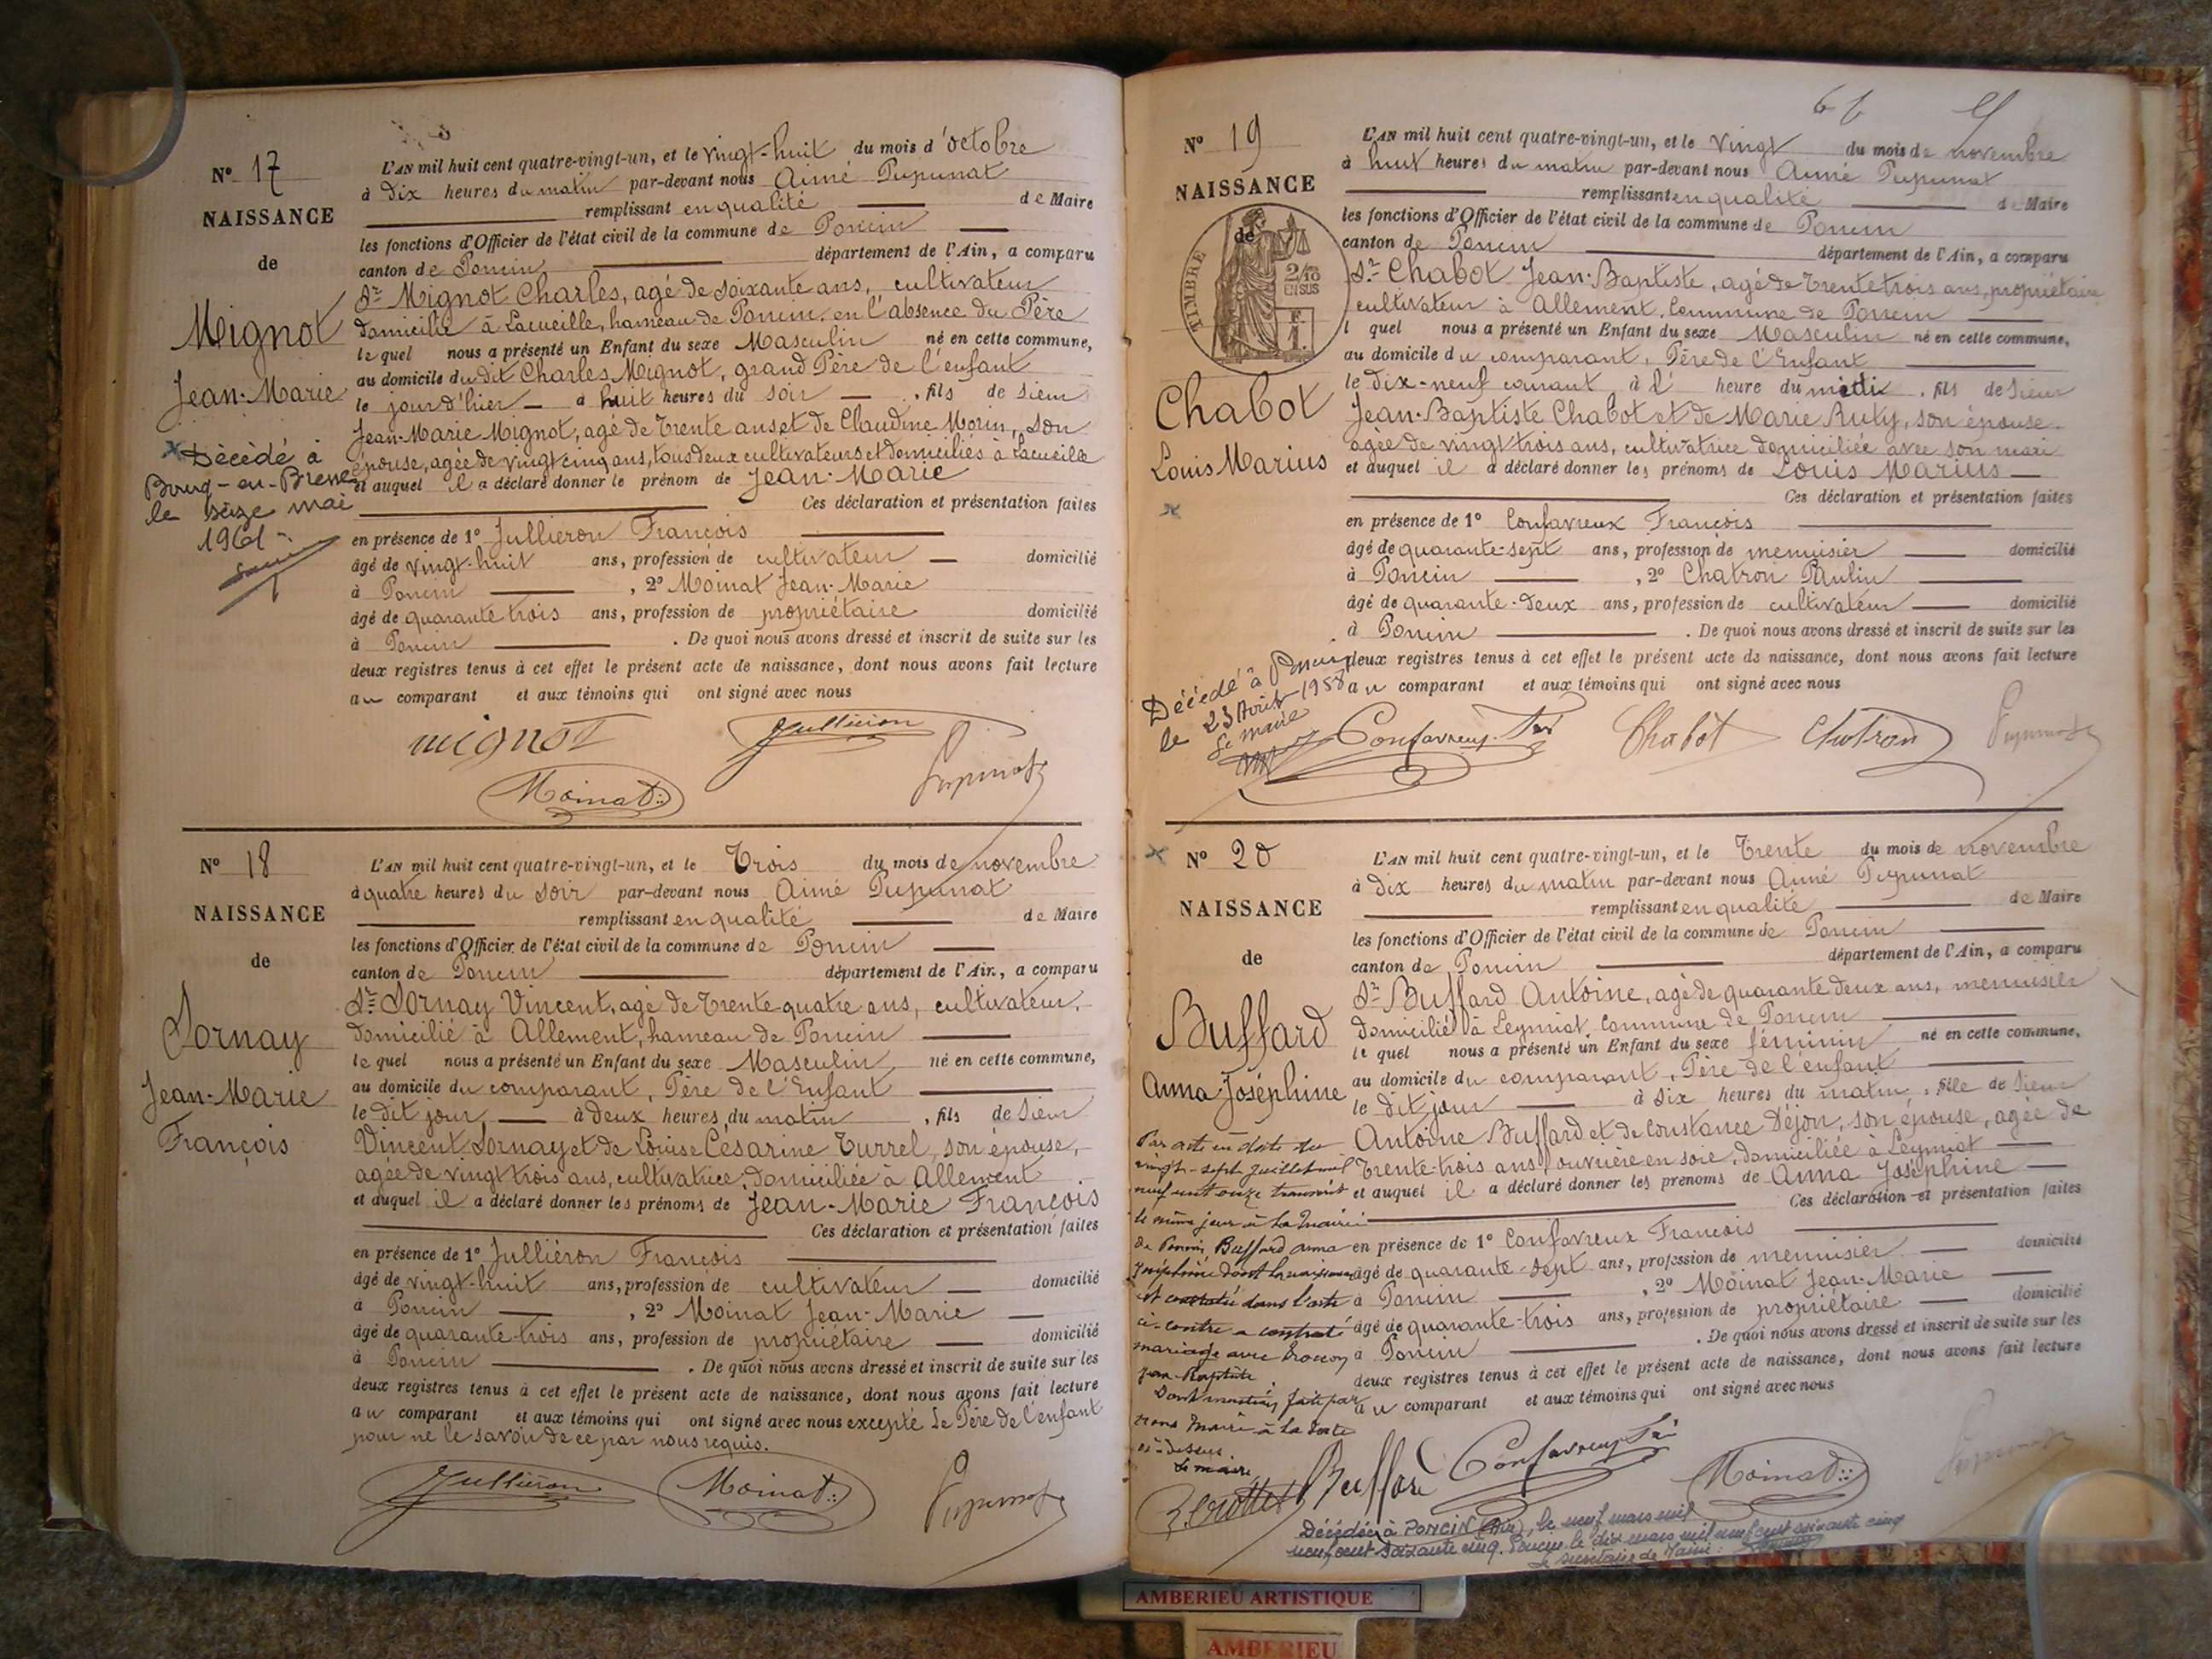 N° 17
NAISSANCE
de
Mignot
Jean-Marie
Décédé à
Bourg-en-Bresse
le seize mai
1961
L'AN mil huit cent quatre-vingt-un, et le vingt-huit du mois d'octobre
à dix heures du matin par-devant nous Aimé Pupunat
remplissant en qualité de Maire
les fonctions d'Officier de l'état civil de la commune de Poncin
canton de Poncin département de l'Ain, a comparu
Sr Mignot Charles, agé de soixante ans, cultivateur
domicilié à Lacueille, hameau de Poncin en l'absence du Père
lequel nous a présenté un Enfant du sexe Masculin né en cette commune,
au domicile du dit Charles Mignot, grand Père de l'enfant
le jour d'hier à huit heures du soir, fils de Sieur
Jean-Marie Mignot, agé de trente ans et de Claudine Morin, son
épouse, agée de vingt cinq ans, tous deux cultivateurs et domiciliés à Lacueille
et auquel il a déclaré donner le prénom de Jean-Marie
Ces déclaration et présentation faites
en présence de 1° Jullieron François
âgé de vingt-huit ans, profession de cultivateur domicilié
à Poncin, 2° Moinat Jean-Marie
âgé de quarante trois ans, profession de propriétaire domicilié
à Poncin. De quoi nous avons dressé et inscrit de suite sur les
deux registres tenus à cet effet le présent acte de naissance, dont nous avons fait lecture
au comparant et aux témoins qui ont signé avec nous
mignot Jullieron
Moinat Pupunat
N° 18
NAISSANCE
de
Sornay
Jean-Marie
François
L'AN mil huit cent quatre-vingt-un, et le Trois du mois de novembre
à quatre heures du soir par-devant nous Aimé Pupunat
remplissant en qualité de Maire
les fonctions d'Officier de l'état civil de la commune de Poncin
canton de Poncin département de l'Ain, a comparu
Sr Sornay Vincent, agé de trente-quatre ans, cultivateur,
domicilié à Allement, hameau de Poncin
lequel nous a présenté un Enfant du sexe Masculin né en cette commune,
au domicile du comparant, Père de l'Enfant
le dit jour à deux heures du matin, fils de Sieur
Vincent Sornay et de Louise Césarine Turrel, son épouse,
agée de vingt trois ans, cultivatrice, domiciliée à Allement
et auquel il a déclaré donner les prénoms de Jean-Marie François
Ces déclaration et présentation faites
en présence de 1° Julliéron François
âgé de vingt-huit ans, profession de cultivateur domicilié
à Poncin, 2° Moinat Jean-Marie
âgé de quarante-trois ans, profession de propriétaire domicilié
à Poncin. De quoi nous avons dressé et inscrit de suite sur les
deux registres tenus à cet effet le présent acte de naissance, dont nous avons fait lecture
au comparant et aux témoins qui ont signé avec nous excepté le Père de l'enfant
pour ne le savoir de ce par nous requis.
Jullieron Moinat Pupunat
N° 19
NAISSANCE
de
TIMBRE
2/10
EN SUS
Chabot
Louis Marius
Décédé à Poncin
le 23 Août 1958
Le maire
L'AN mil huit cent quatre-vingt-un, et le Vingt du mois de novembre
à huit heures du matin par-devant nous Aimé Pupunat
remplissant en qualité de Maire
les fonctions d'Officier de l'état civil de la commune de Poncin
canton de Poncin département de l'Ain, a comparu
Sr Chabot Jean-Baptiste, agé de trente trois ans, propriétaire
cultivateur à Allement, Commune de Poncin
lequel nous a présenté un Enfant du sexe Masculin né en cette commune,
au domicile du comparant, Père de l'Enfant
le dix-neuf courant à l' heure du midi, fils de Sieur
Jean-Baptiste Chabot et de Marie Ruty, son épouse.
agée de vingt trois ans, cultivatrice domiciliée avec son mari
et auquel il a déclaré donner les prénoms de Louis Marius
Ces déclaration et présentation faites
en présence de 1° Confavreux François
âgé de quarante-sept ans, profession de menuisier domicilié
à Poncin, 2° Chatron Paulin
âgé de quarante-deux ans, profession de cultivateur domicilié
à Poncin. De quoi nous avons dressé et inscrit de suite sur les
deux registres tenus à cet effet le présent acte de naissance, dont nous avons fait lecture
au comparant et aux témoins qui ont signé avec nous
Confavreux Chabot Chatron Pupunat
N° 20
NAISSANCE
de
Buffard
Anna Joséphine
Par acte en date du
vingt-sept juillet mil
neuf cent onze transmis
le même jour à la mairie
de Poncin, Buffard anna
joséphine dont la naissance
est constatée dans l'acte
ci-contre a contracté
mariage avec
jean-Baptiste.
Dont mention faite par
nous Maire à la date
ci-dessus.
Le maire,
L'AN mil huit cent quatre-vingt-un, et le Trente du mois de novembre
à dix heures du matin par-devant nous Aimé Pupunat
remplissant en qualité de Maire
les fonctions d'Officier de l'état civil de la commune de Poncin
canton de Poncin département de l'Ain, a comparu
Sr Buffard Antoine, agé de quarante deux ans, menuisier
domicilié à Leymiat, Commune de Poncin
lequel nous a présenté un Enfant du sexe féminin né en cette commune,
au domicile du comparant, Père de l'enfant
le dit jour à six heures du matin, fille de Sieur
Antoine Buffard et de Constance Déjon, son épouse, agée de
trente-trois ans, ouvrière en soie, domiciliée à Leymiat
et auquel il a déclaré donner les prénoms de Anna Joséphine
Ces déclaration et présentation faites
en présence de 1° Confavreux François
âgé de quarante-sept ans, profession de menuisier domicilié
à Poncin, 2° Moinat Jean-Marie
âgé de quarante-trois ans, profession de propriétaire domicilié
à Poncin. De quoi nous avons dressé et inscrit de suite sur les
deux registres tenus à cet effet le présent acte de naissance, dont nous avons fait lecture
au comparant et aux témoins qui ont signé avec nous
Buffard Confavreux Moinat Pupunat
Décédée à PONCIN (Ain), le neuf mars mil
neuf cent soixante cinq. Poncin le dix mars mil neuf cent soixante cinq
Le secrétaire de Mairie:
AMBERIEU ARTISTIQUE
AMBERIEU